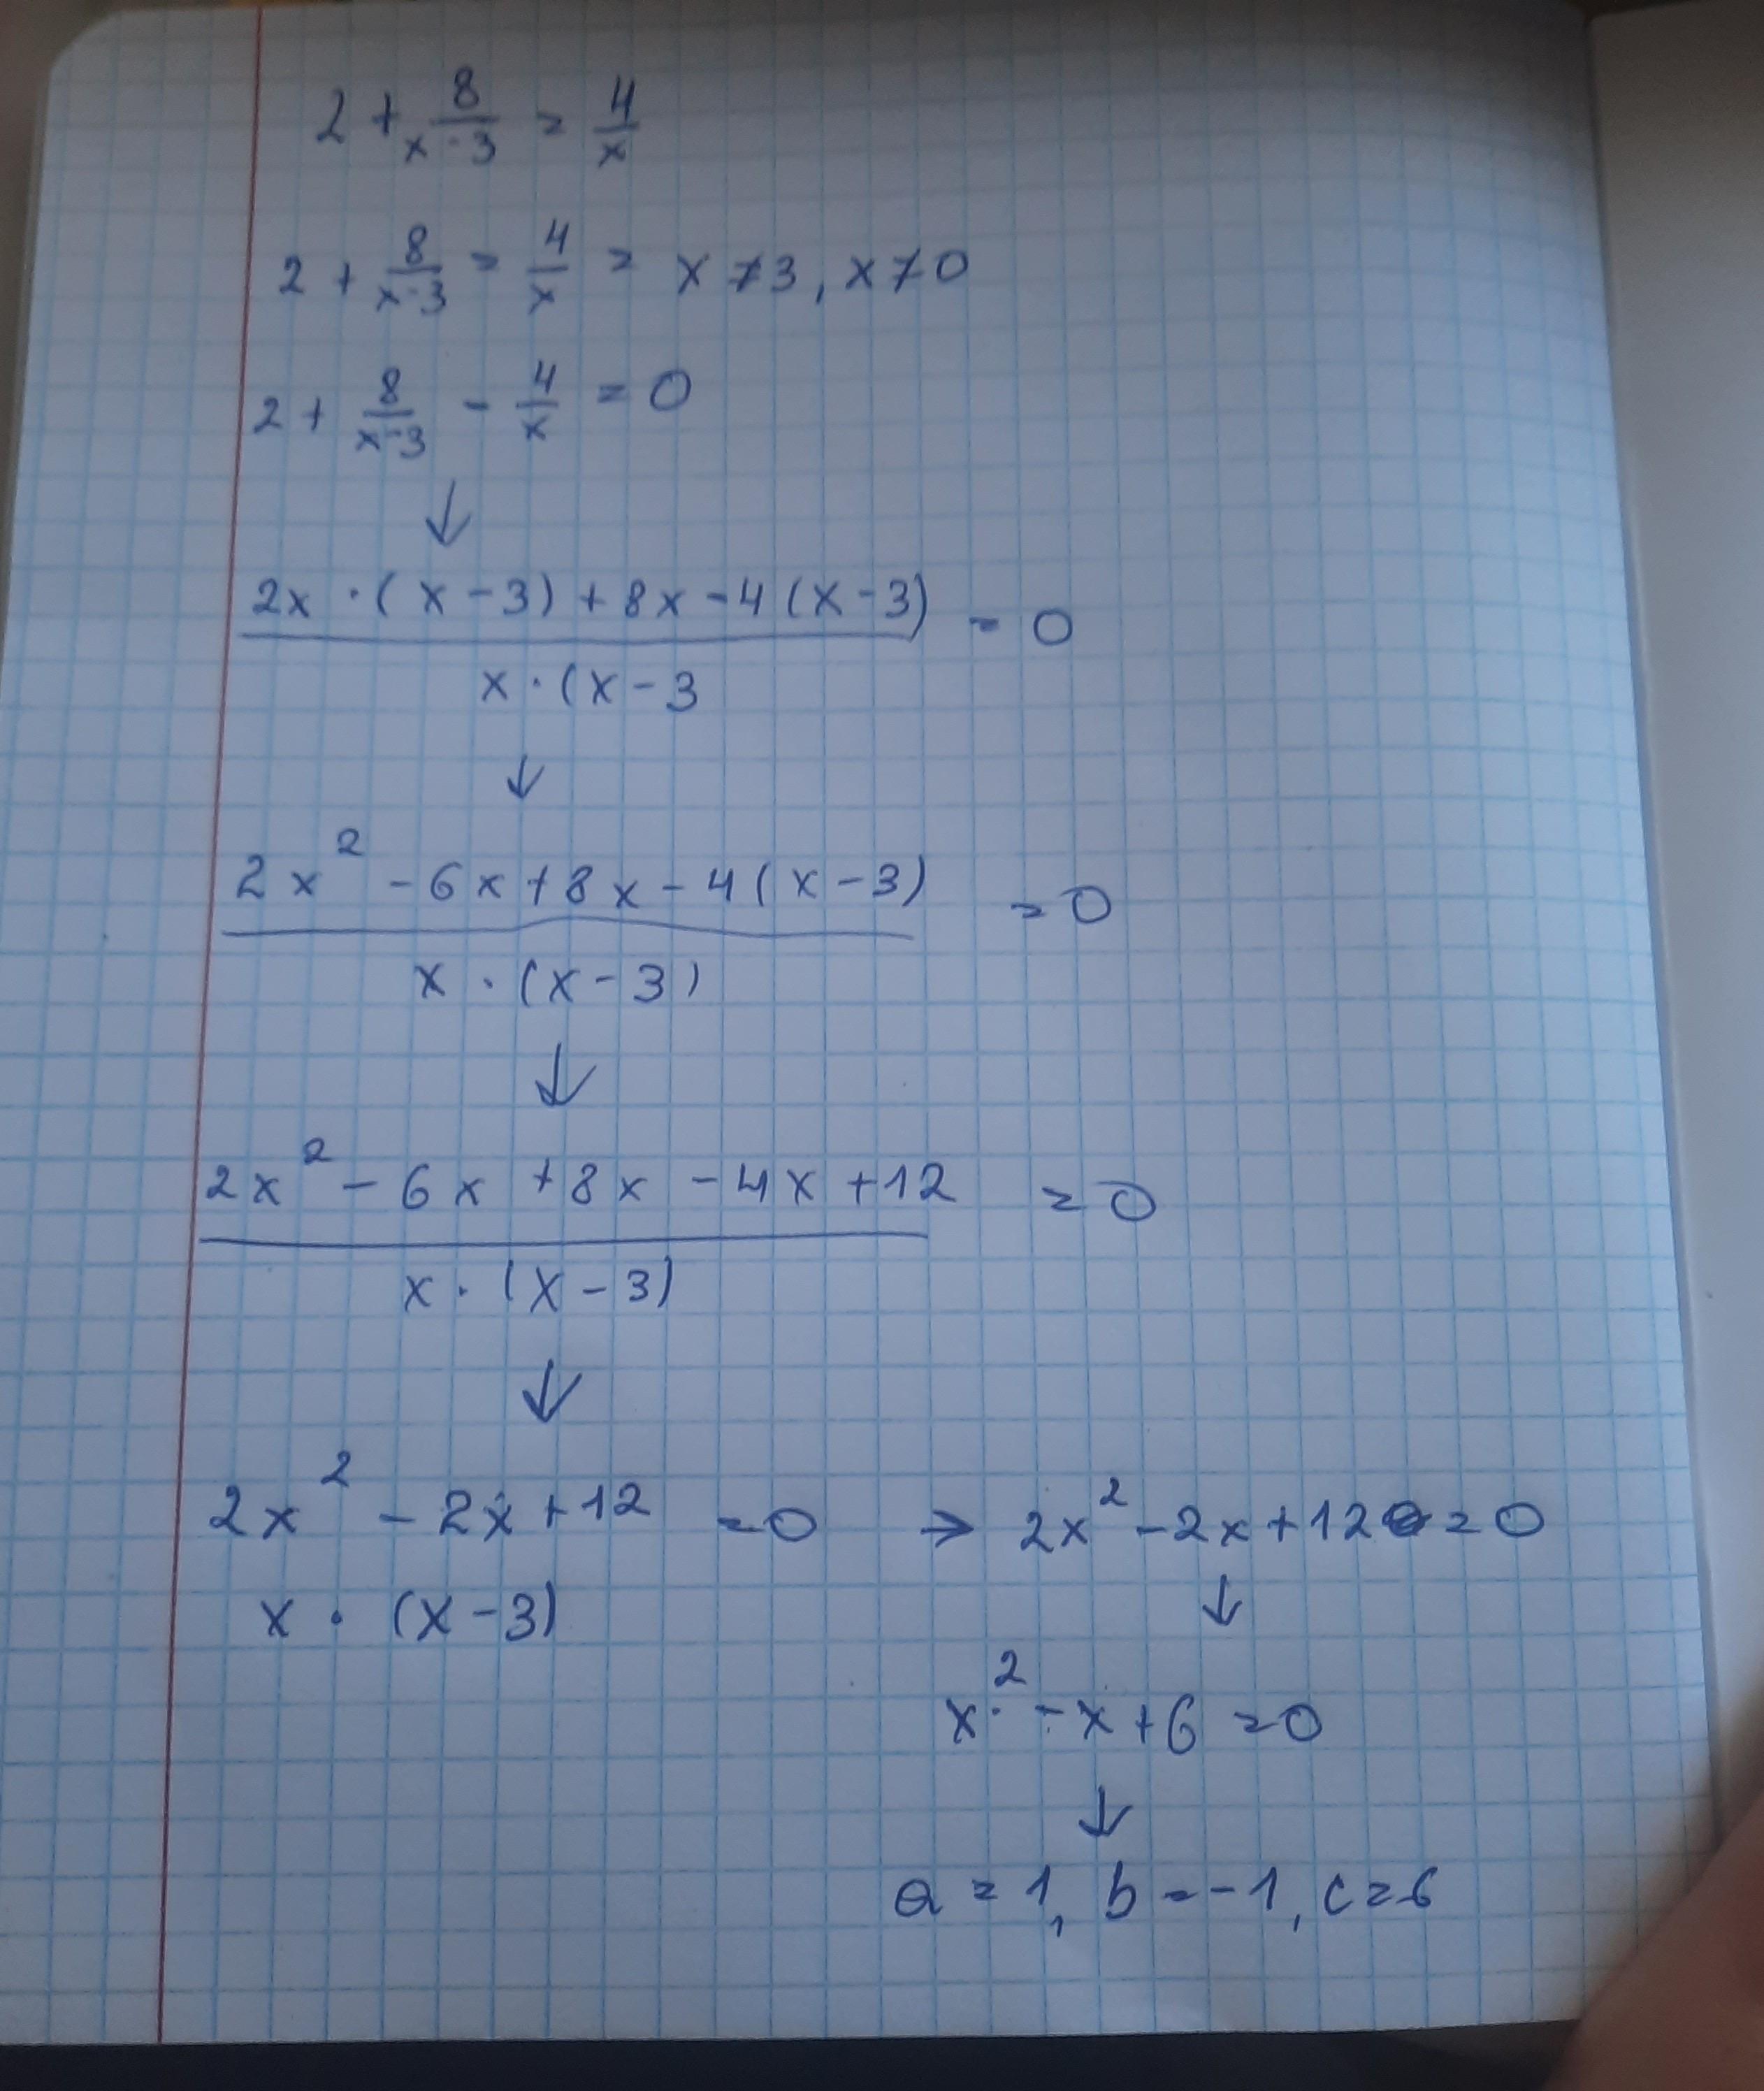 2 + 8/(x-3) = 4/x
2 + 8/(x-3) = 4/x = x ≠ 3, x ≠ 0
2 + 8/(x-3) - 4/x = 0
↓
2x · (x - 3) + 8x - 4 (x - 3)
= 0
x · (x - 3
↓
2x² - 6x + 8x - 4 (x - 3)
= 0
x · (x - 3)
↓
2x² - 6x + 8x - 4x + 12
= 0
x · (x - 3)
↓
2x² - 2x + 12 = 0 → 2x² - 2x + 12 = 0
x · (x - 3)
↓
x² - x + 6 = 0
↓
a = 1, b = -1, c = 6